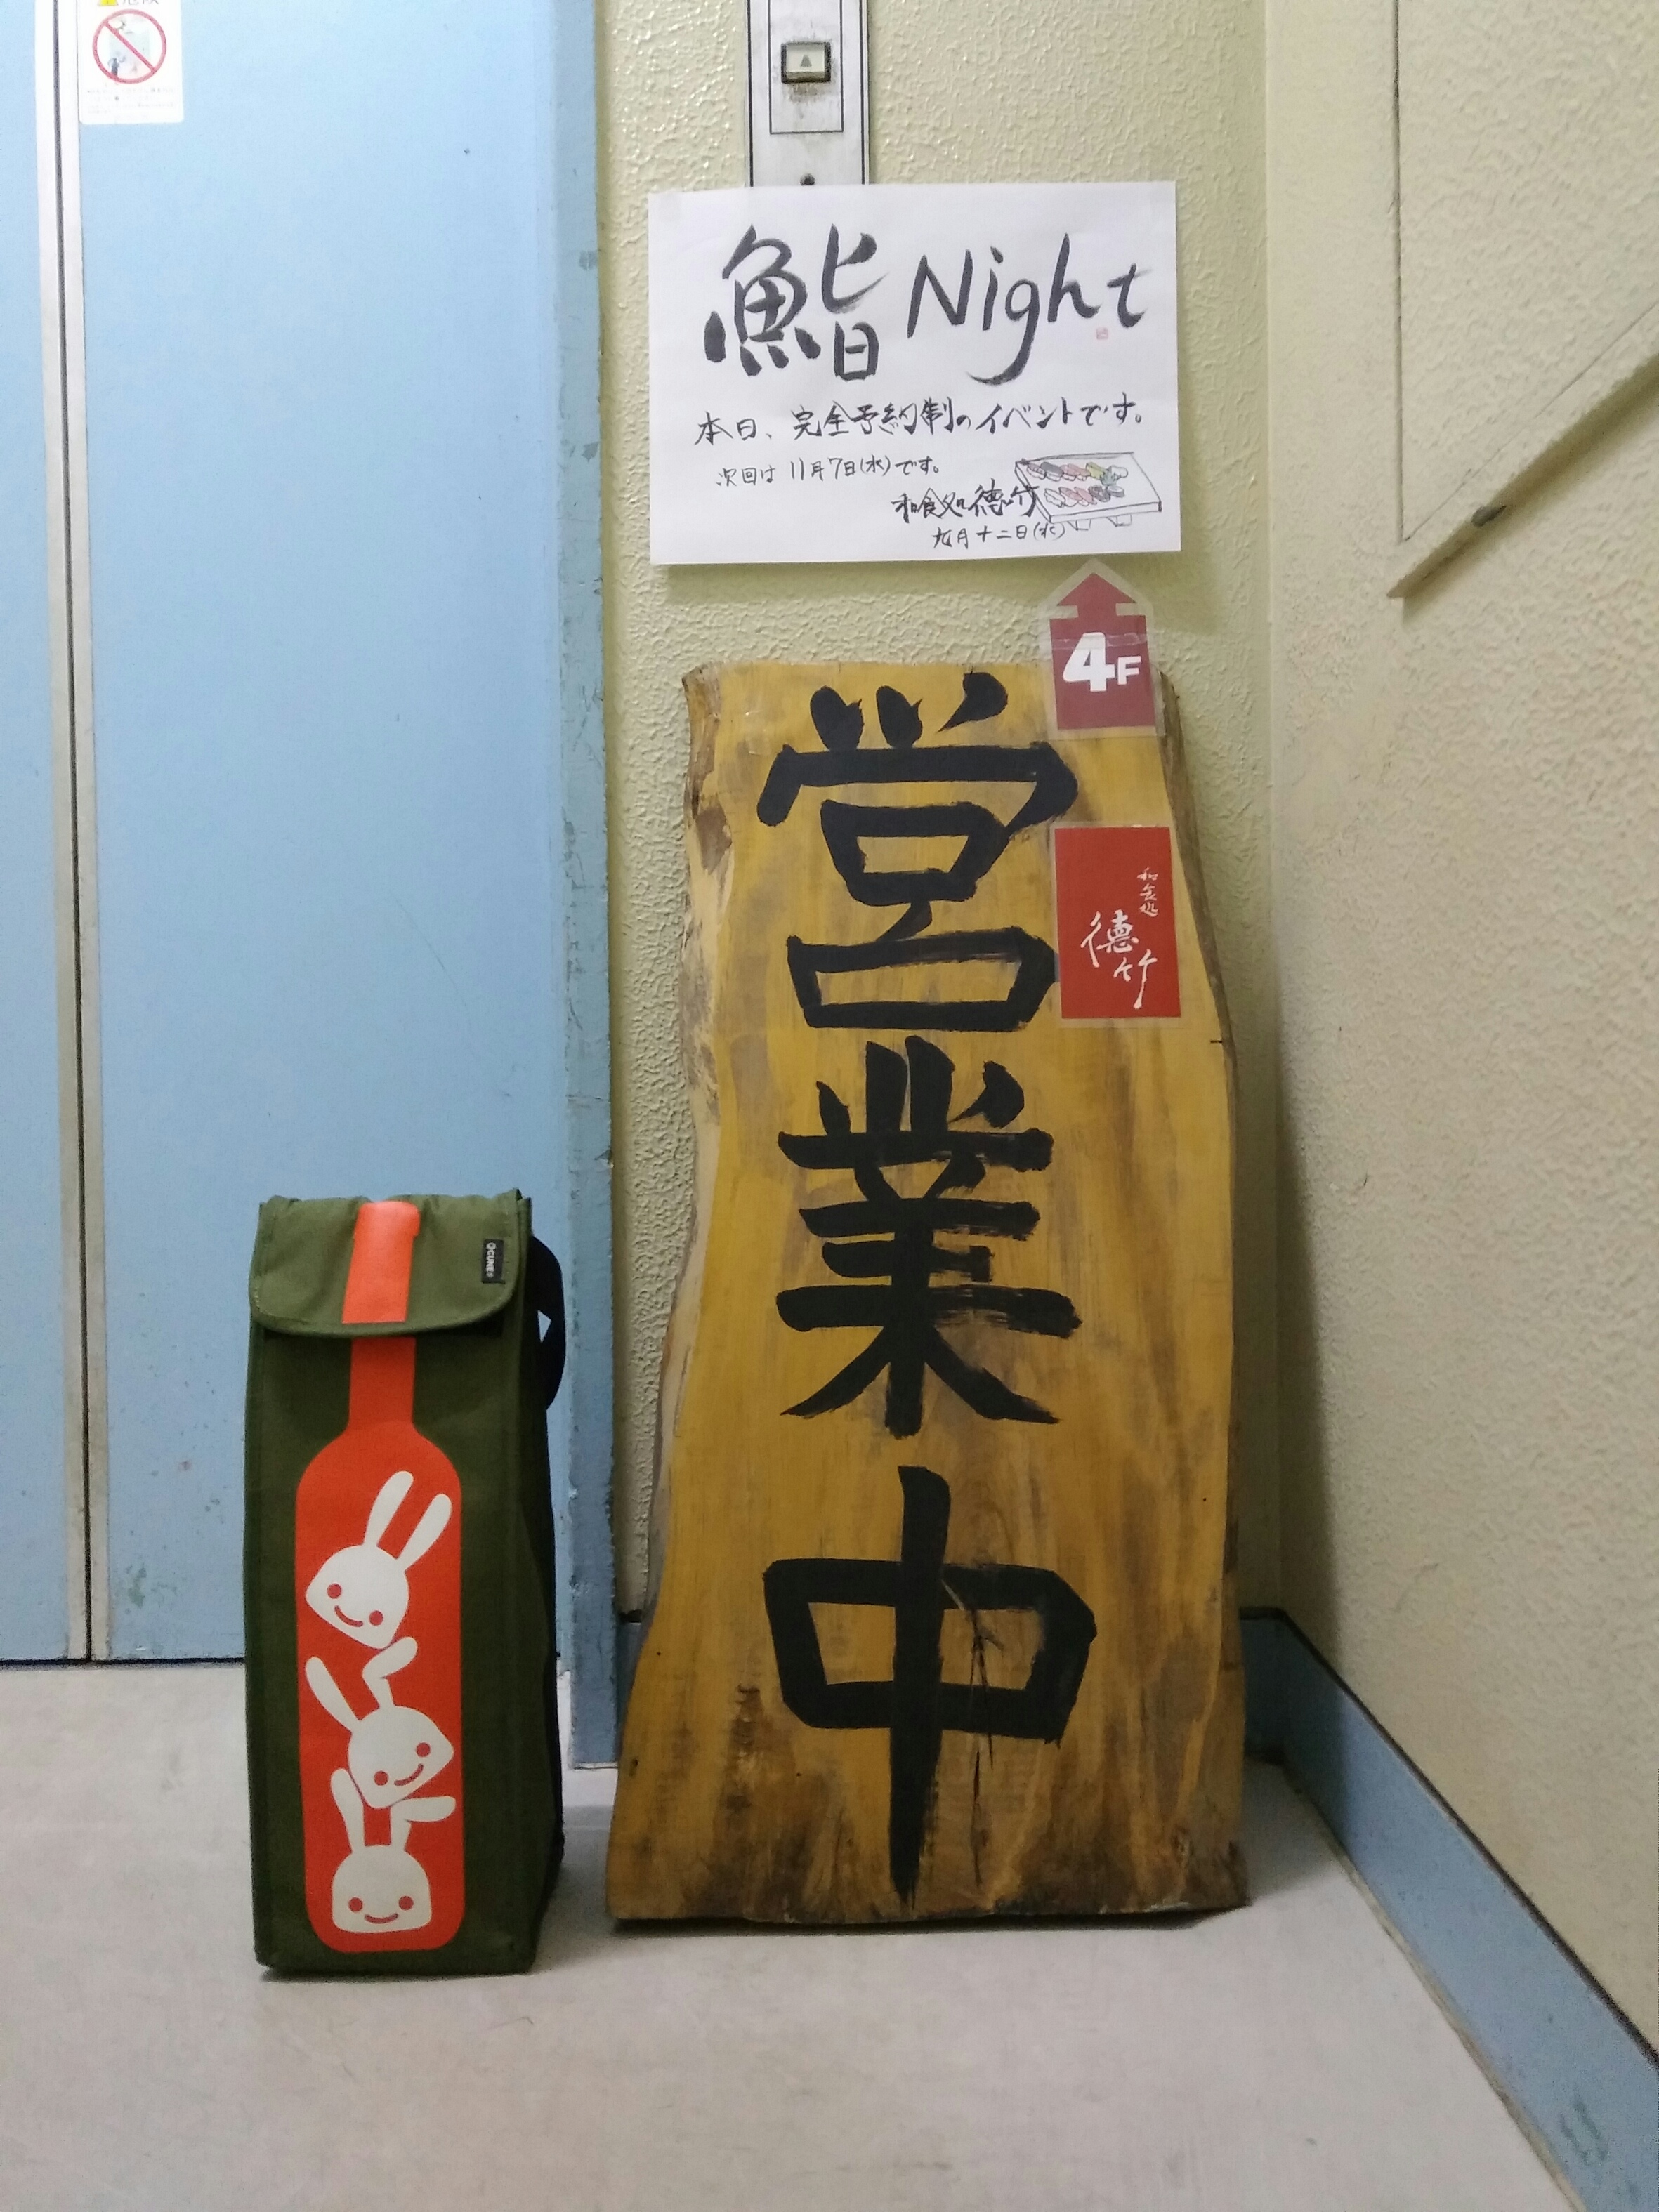 鮨 Night
本日、完全予約制のイベントです。
次回は 11月7日(水)です。
和食処 德竹
九月十二日(水)
4F
営業中
和食処
德竹
CUNE